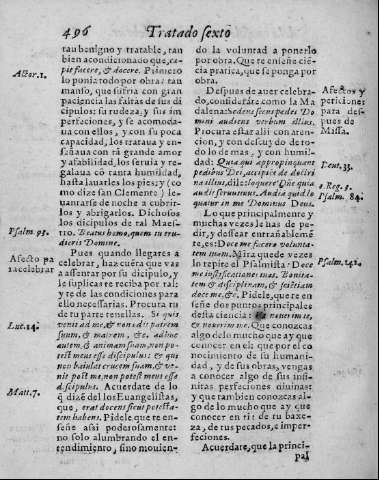 496
Tratado sexto
tau benigno y tratable, tan
bien acondicionado que, cæ-
pit facere, & docere. Primero
lo ponia todo por obra: tan
manso, que sufria con gran
paciencia las faltas de sus di
cipulos: su rudeza, y sus im
perfecciones, y se acomoda-
ua con ellos, y con su poca
capacidad, los trataua y en-
señaua con grã grande amor
y afabilidad, los seruia y re-
galaua cõ tanta humildad,
hasta lauarles los pies; y (co
mo dize san Clemente) le-
uantarse de noche a cubrir-
los y abrigarlos. Dichosos
los dicipulos de tal Maes-
tro. Beatus homo, quem tu eru-
dieris Domine.
Pues quando llegares a
celebrar, haz cuẽta que vas
a assentar por su dicipulo, y
le suplicas te reciba por tal:
y te dè las condiciones para
ello necessarias. Procura tu
de tu parte tenellas. Si quis
venit ad me, & non odit patrem
suum, & matrem, &c. adhuc
autem & animam suam, non po-
test meus esse discipulus: & qui
non baiulat crucem suam, & ve-
nit post me, non potest meus esse
discipulus. Acuerdate de lo
q̃ dizẽ del los Euangelistas,
que, erat docens sicut potestã-
tem habens. Pidele, que te en-
señe assi poderosamente:
no solo alumbrando el en-
tendimiento, sino mouien-
Actor. 1.
Psalm. 93.
Afecto pa
ra celebrar
Luc. 14.
Matt. 7.
do la voluntad a ponerlo
por obra. Que te enseñe ciẽ
cia pratica, que se ponga por
obra.
Despues de auer celebra-
do, considerate como la Ma
dalena: sedens secus pedes Do-
mini audiens verbum illius.
Procura estar alli con aten-
cion, y con desseo de
lo lo de mas, y con humil-
dad: Quia qui appropinquant
pedibus Dei, accipiet de doctri-
na illius, dile: loquere Dñe quia
audit seruus tuus. Audiã quid lo
quatur in me Dominus Deus.
Lo que principalmente y
muchas vezes le has de pe-
dir, y dessear entrañablemẽ
te, es: Doce me facere volunta-
tem tuam. Mira quãde vezes
lo repite el Psalmista: Doce
me iustificationes tuas. Bonita-
tem & disciplinam, & scientiam
doce me, &c. Pidele, que te en-
señe dos puntos principales
desta ciencia: nouerim te,
& nouerim me. Que conozcas
algo delo mucho que ay que
conocer en el: que por el co
nocimiento de su humani-
dad, y de sus obras, vengas
a conocer algo de sus infi-
nitas perfeciones diuinas: y
que tambien conozcas al-
go de lo mucho que ay que
conocer en ti: de tu baxe-
za, de tus pecados, e imper-
feciones.
Acuerdate, que la princi-
pal
Afectos y
peticiones
para des-
pues de
Missa.
Deut. 33.
1. Reg. 3.
Psalm. 84.
Psalm. 142.